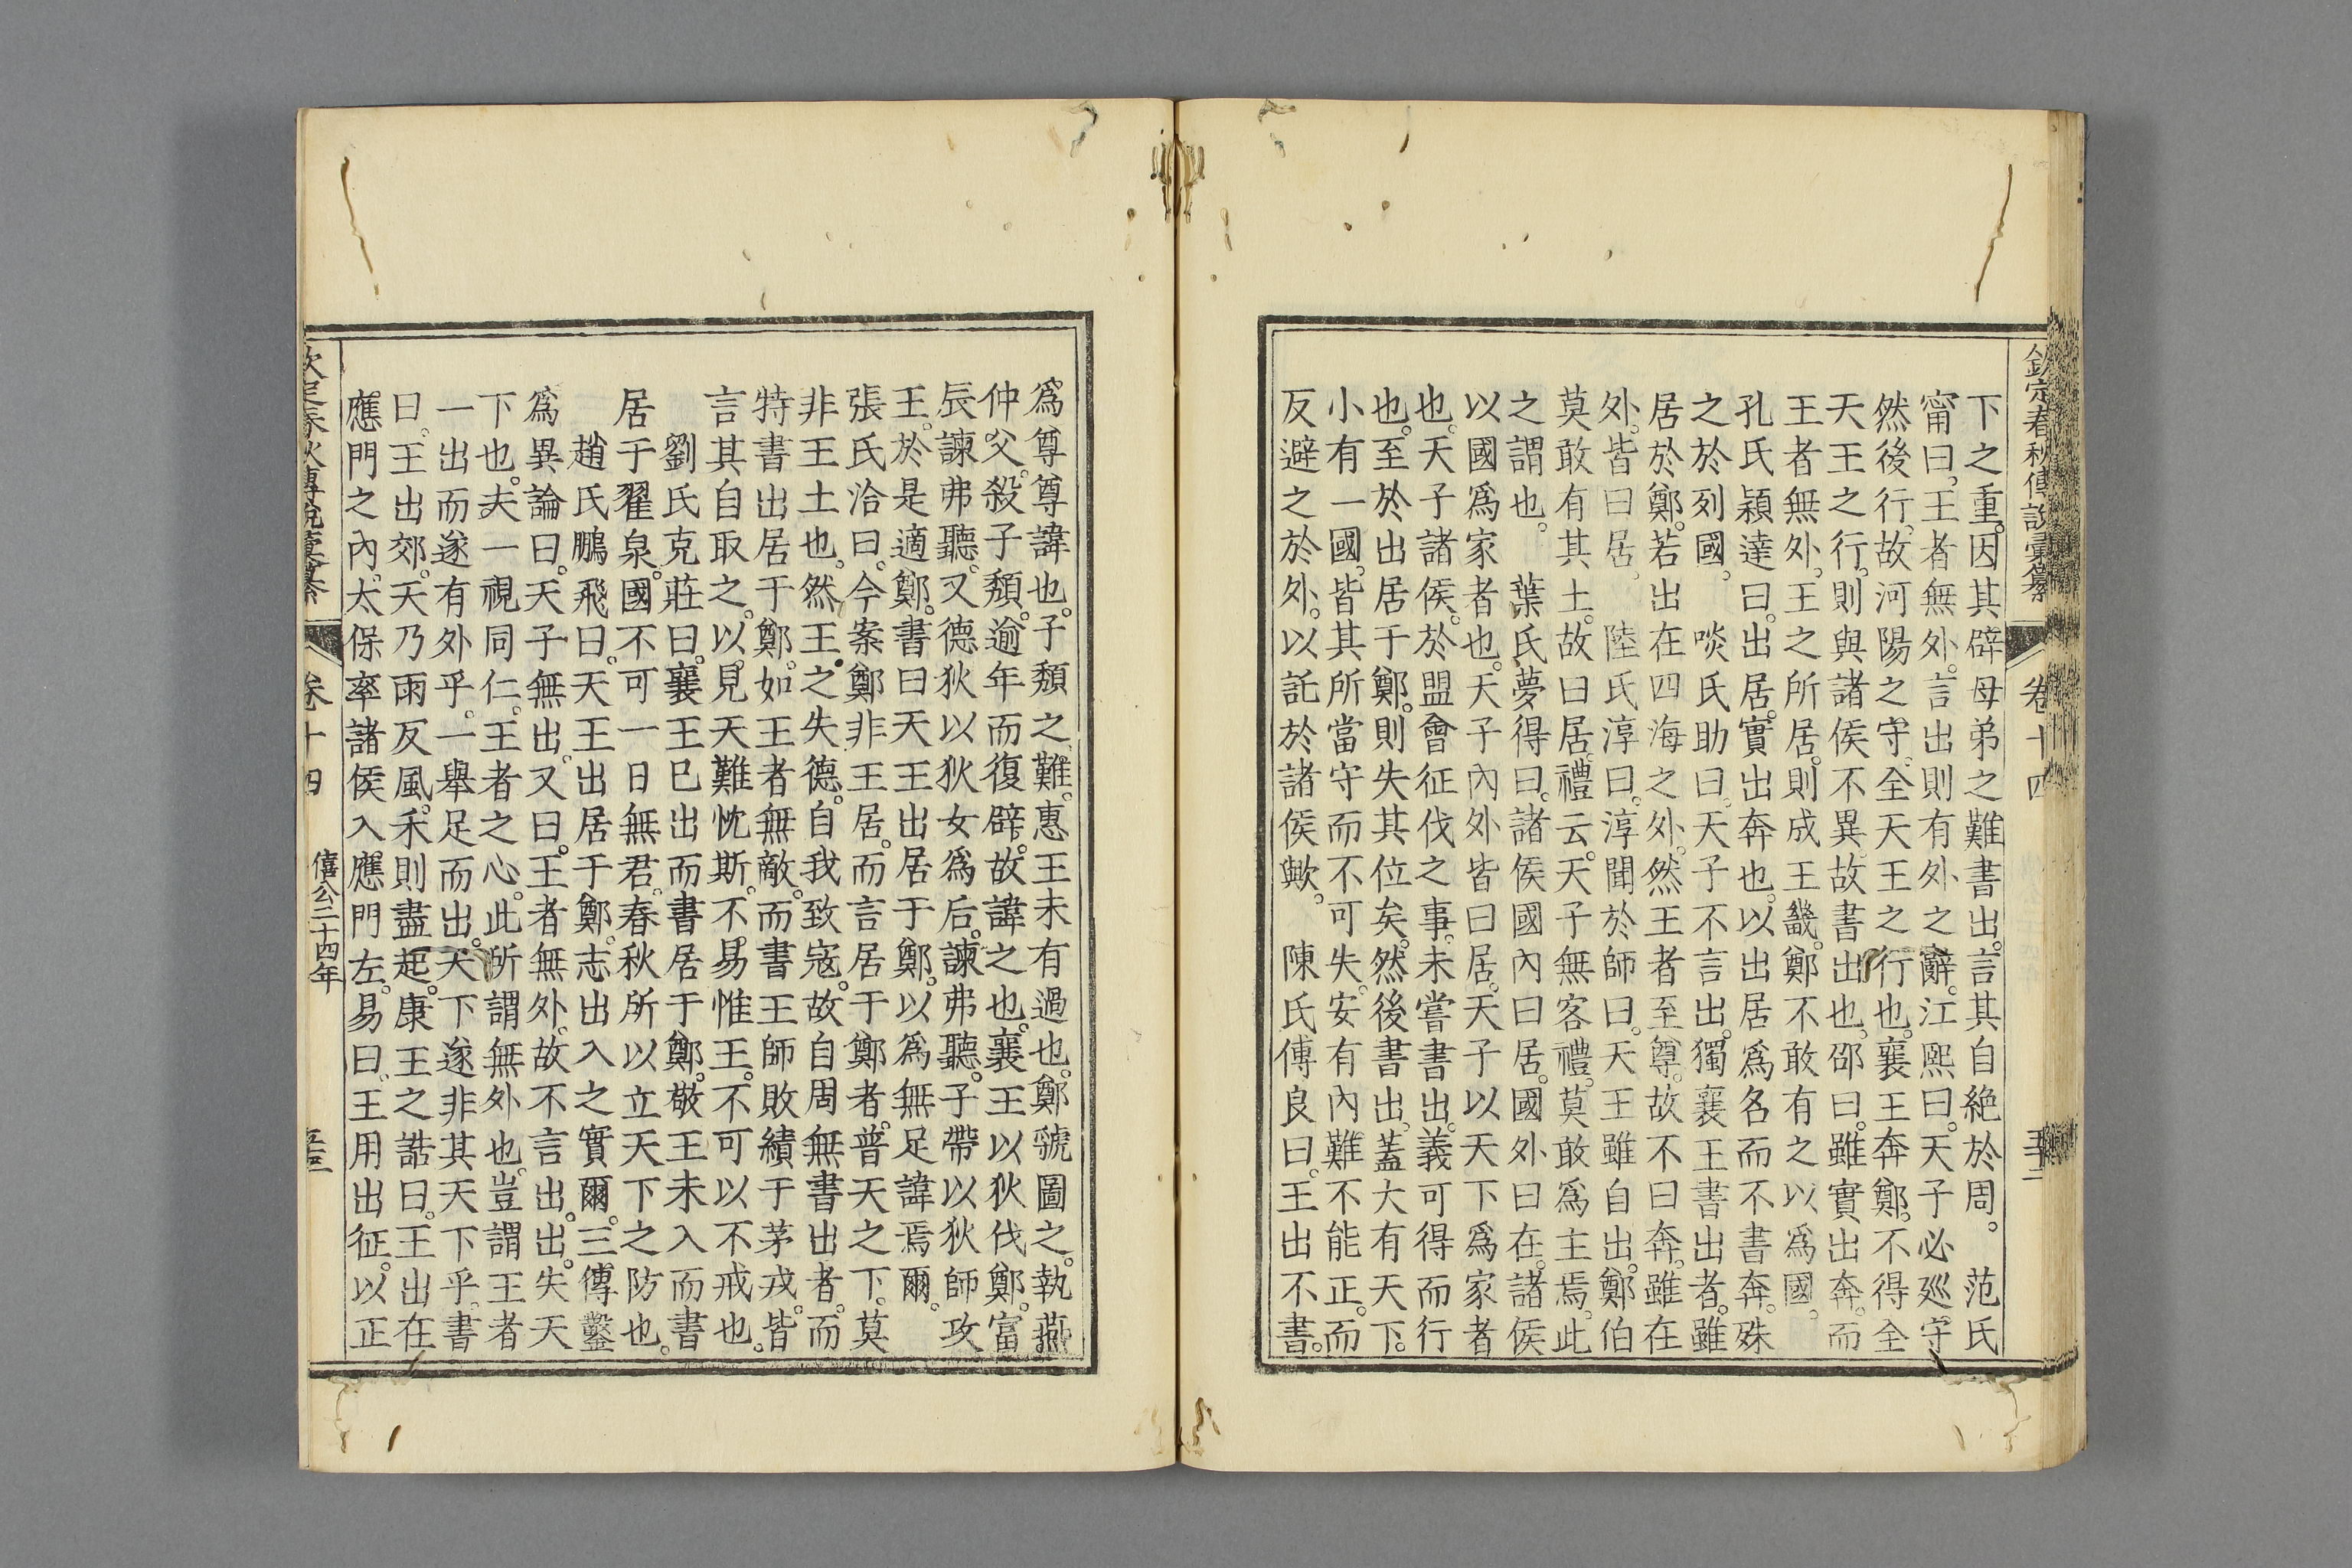 欽定春秋傳說彙纂 卷十四
下之重。因其辟母弟之難書出。言其自絶於周。 范氏
甯曰。王者無外。言出則有外之辭。江熙曰。天子必巡守
然後行。故河陽之守。全天王之行也。襄王奔鄭。不得全
天王之行。則與諸侯不異。故書出也。邵曰。雖實出奔。而
王者無外。王之所居。則成王畿。鄭不敢有之以爲國。
孔氏穎達曰。出居。實出奔也。以出居爲名而不書奔。殊
之於列國。 啖氏助曰。天子不言出。獨襄王書出者。雖
居於鄭。若出在四海之外。然王者至尊。故不曰奔。雖在
外。皆曰居。 陸氏淳曰。淳聞於師曰。天王雖自出。鄭伯
莫敢有其土。故曰居。禮云。天子無客禮。莫敢爲主焉。此
之謂也。 葉氏夢得曰。諸侯國內曰居。國外曰在。諸侯
以國爲家者也。天子內外皆曰居。天子以天下爲家者
也。天子諸侯。於盟會征伐之事。未嘗書出。義可得而行
也。至於出居于鄭。則失其位矣。然後書出。蓋大有天下。
小有一國。皆其所當守而不可失。安有內難不能正。而
反避之於外。以託於諸侯歟。 陳氏傅良曰。王出不書。
爲尊尊諱也。子頹之難。惠王未有過也。鄭虢圖之。執燕
仲父。殺子頹。逾年而復辟。故諱之也。襄王以狄伐鄭。富
辰諫弗聽。又德狄以狄女爲后。諫弗聽。子帶以狄師攻
王。於是適鄭。書曰天王出居于鄭。以爲無足諱焉爾。
張氏洽曰。今案鄭非王居。而言居于鄭者。普天之下。莫
非王土也。然王之失德。自我致寇。故自周無書出者。而
特書出居于鄭。如王者無敵。而書王師敗績于茅戎。皆
言其自取之。以見天難忱斯。不易惟王。不可以不戒也。
劉氏克莊曰。襄王巳出而書居于鄭。敬王未入而書
居于翟泉。國不可一日無君。春秋所以立天下之防也。
趙氏鵬飛曰。天王出居于鄭。志出入之實爾。三傳鑿
爲異論曰。天子無出。又曰。王者無外。故不言出。出。失天
下也。夫一視同仁。王者之心。此所謂無外也。豈謂王者
一出而遂有外乎。一舉足而出。天下遂非其天下乎。書
曰。王出郊。天乃雨反風。禾則盡起。康王之誥曰。王出在
應門之內。太保率諸侯入應門左。易曰。王用出征。以正
欽定春秋傳說彙纂 卷十四 僖公二十四年